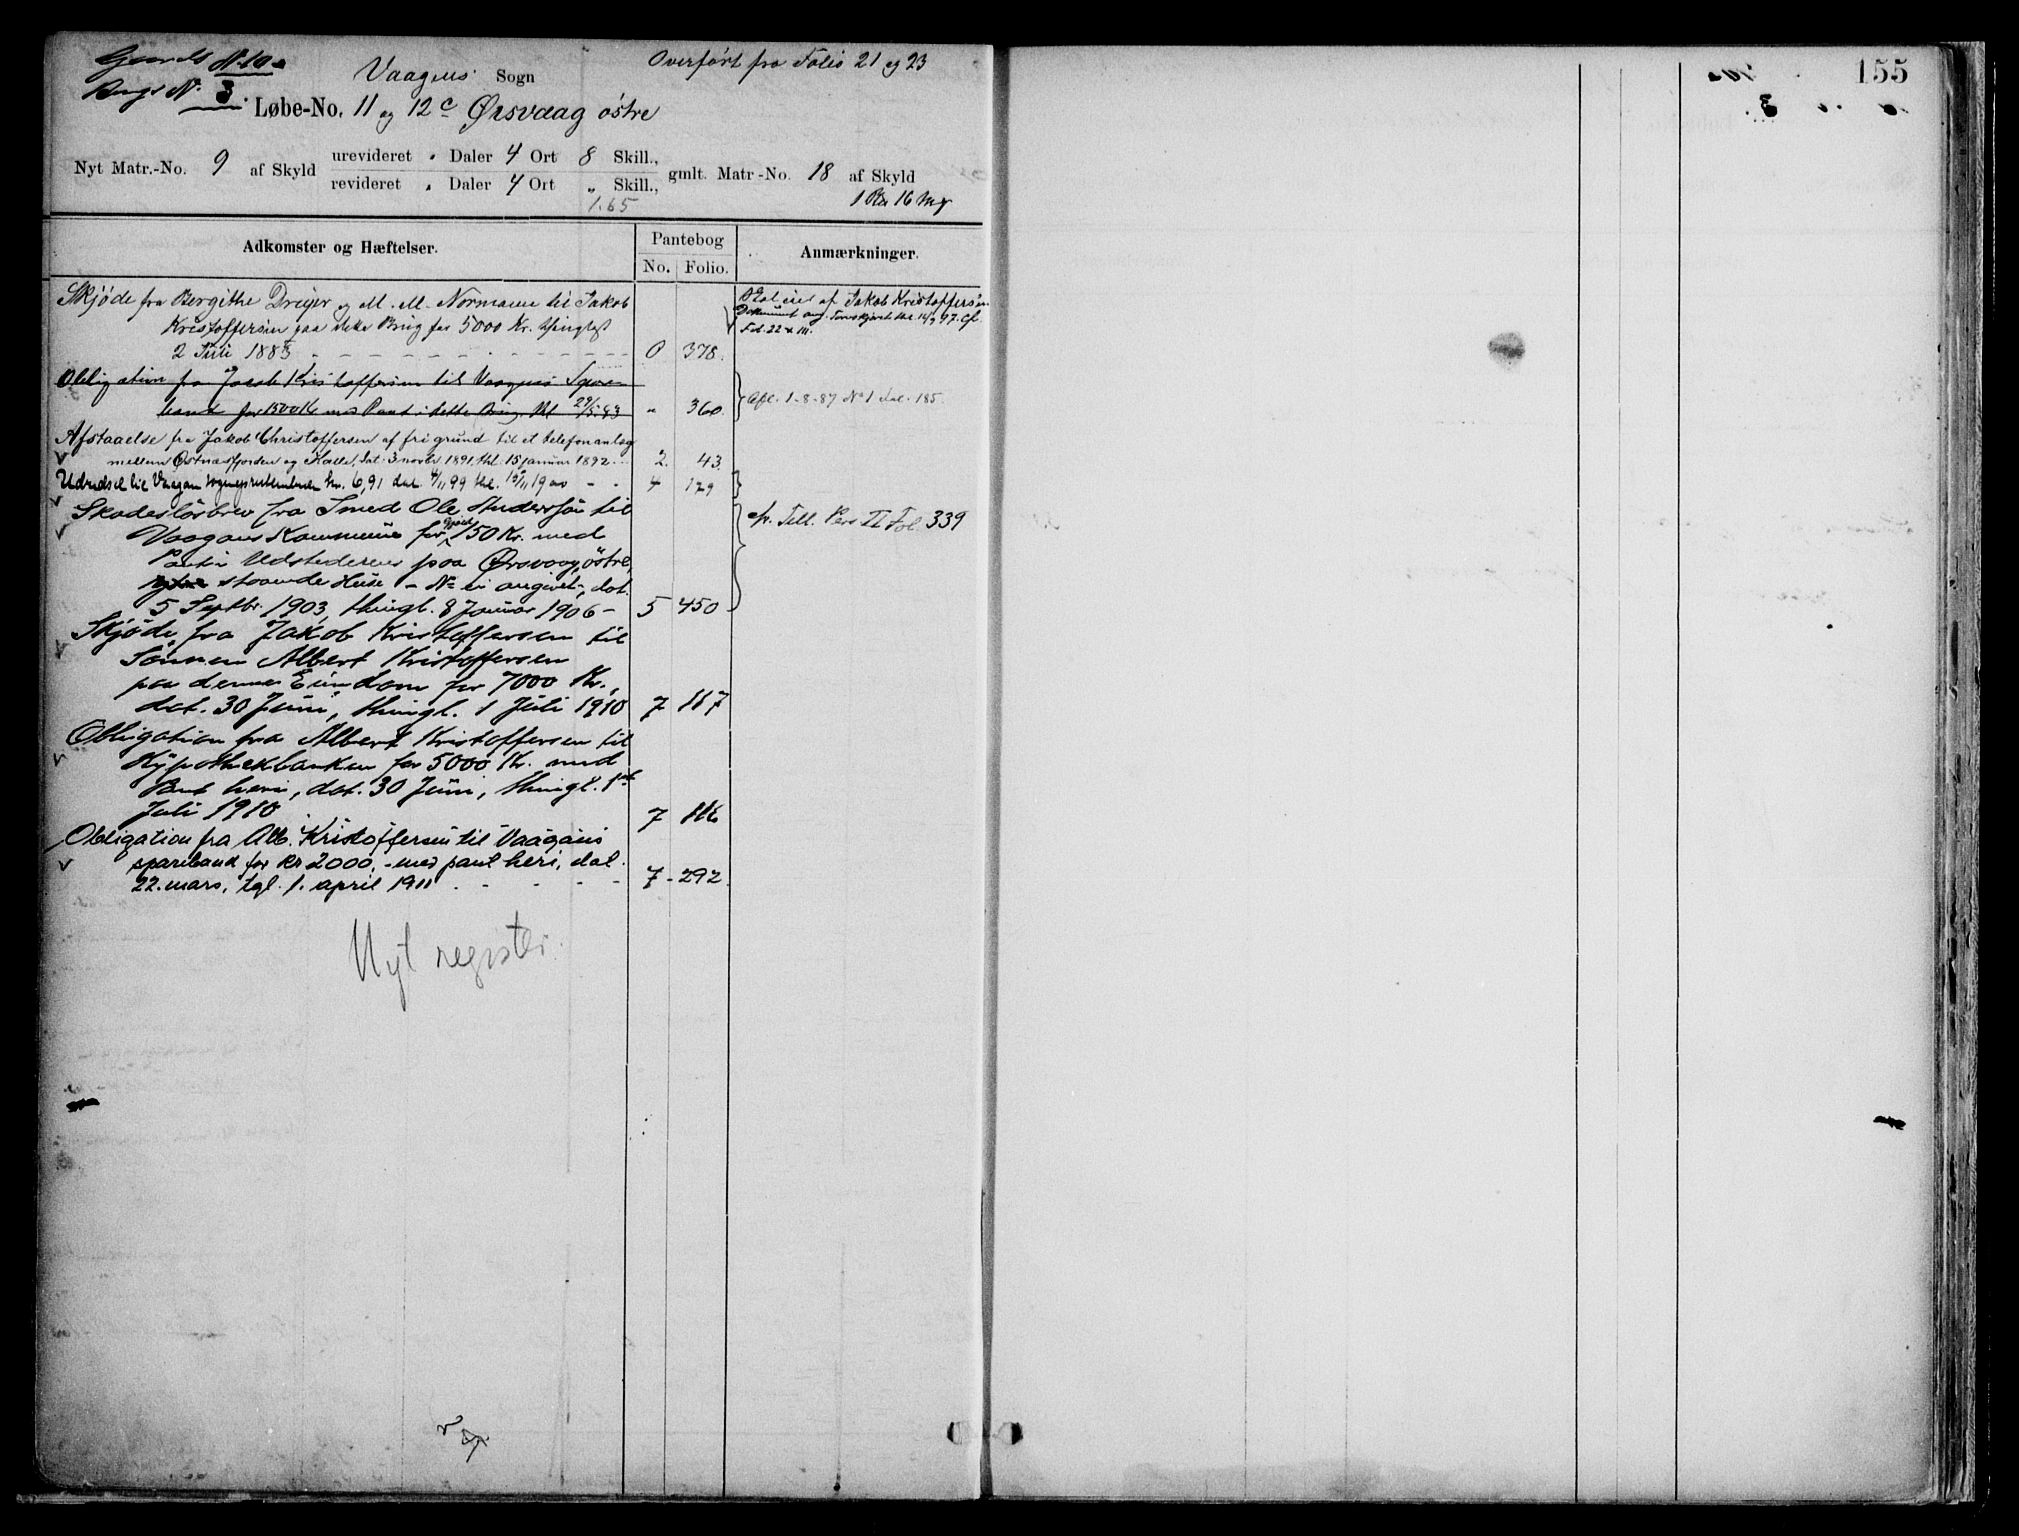 Gaards No 10
Brugs No. 3.
Vaagens Sogn
Overført fra Folio 21 og 23
155
Løbe-No. 11 og 12c Ørsvaag østre
Nyt Matr.-No. 9 af Skyld
urevideret " Daler 4 Ort 8 Skill.,
revideret " Daler 4 Ort " Skill.,
1.65
gmlt. Matr.-No. 18 af Skyld
16 Mg
Adkomster og Hæftelser.
Pantebog
No. Folio.
Anmærkninger.
Skjøde fra Bergithe Dreyer og M. M. Normann til Jakob
Kristoffersen paa dette Brug for 5000 Kr. thinglyst
2 Juli 1883 - - - - - - - O 378.
af Jakob Kristoffersen
Fol. 22 & 111.
Obligation fra Jacob Kristoffersen til Vaagens Spare-
bank for 1500 Kr med Pant i dette Brug. thl 29/5.83 " 360.
Afl. 1-8-87 No 1 Fol. 185.
Afstaaelse fra Jakob Christoffersen af fri grund til et telefonanlæg
mellem Østnæsfjorden og Kalle, dat. 3 novbr 1891, thl. 15 januar 1892 - - 2. 43.
Udredsel til Vaagan kr. 6,91 dat. 4/11 99 thl. 1900 - - 4 129
Skadesløsbrev fra Smed Ole Andersen til
Vaagans Kommune for 150 Kr. med
Pant i Udstederens paa Ørsvaag, östre,
staaende Huse - No ei angivet -, dat.
5 Septbr. 1903, thingl. 8 Januar 1906 - 5 450
cfr. Till. Pers II Fol. 339
Skjøde, fra Jakob Kristoffersen til
Sønnen Albert Kristoffersen
paa denne Eiendom for 7000 Kr.,
dat. 30 Juni, thingl. 1 Juli 1910 7 117
Obligation fra Albert Kristoffersen til
Hypothekbanken for 5000 Kr. med
Pant heri, dat. 30 Juni, thingl. 1ste
Juli 1910 7 116
Obligation fra Alb. Kristoffersen til Vaagans
sparebank for kr 2000,- med pant heri, dat.
22. mars, tgl. 1. april 1911 - - - - 7 - 292.
Nyt register.